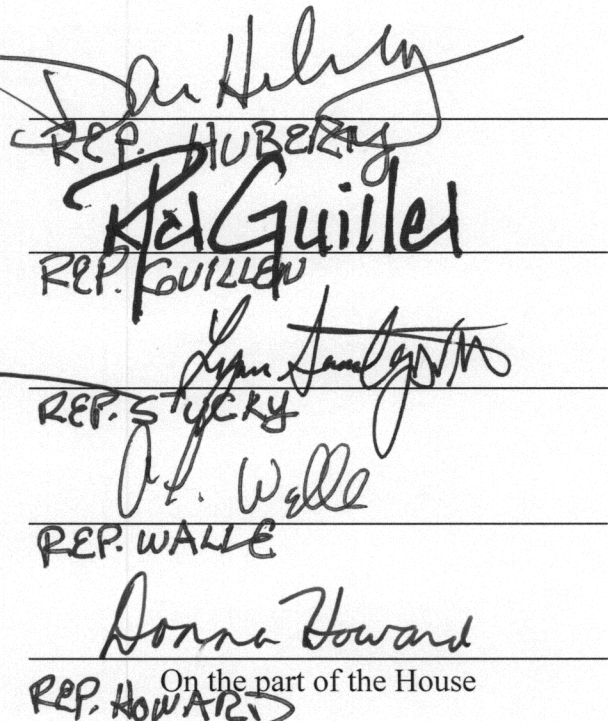 Dan Huberty
REP. HUBERTY
Ryan Guillen
REP. GUILLEN
Lynn Stucky
REP. STUCKY
A. Walle
REP. WALLE
Donna Howard
On the part of the House
REP. HOWARD